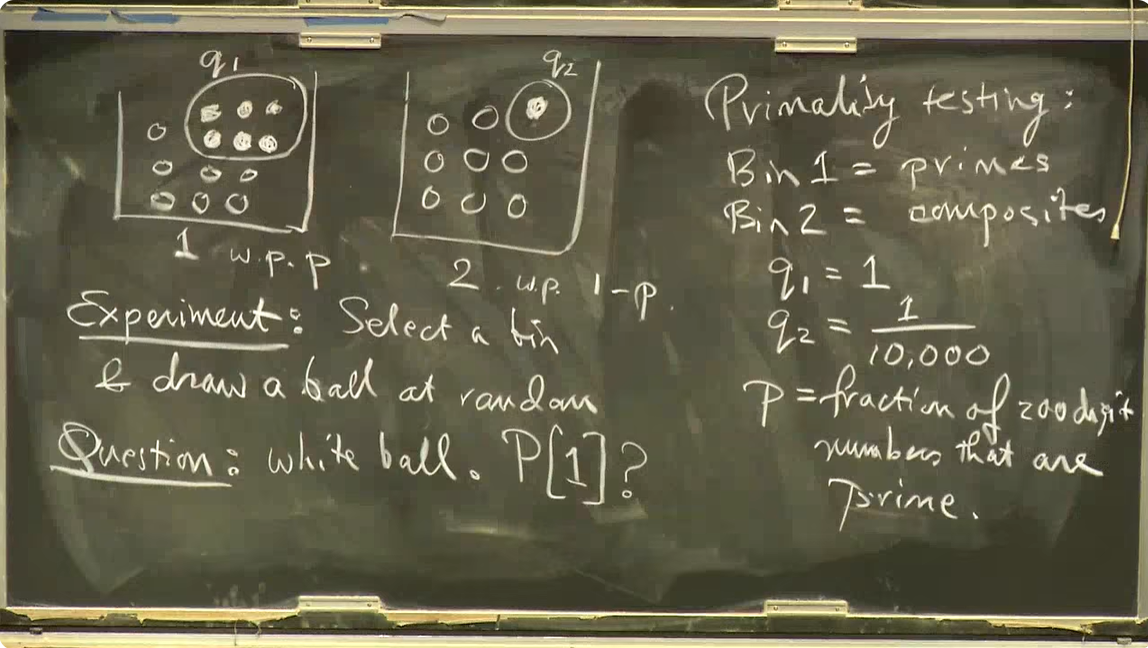 q1
q2
1 w.p. p
2 w.p. 1-p.
Experiment: Select a bin
& draw a ball at random
Question: white ball. P[1]?
Primality testing:
Bin 1 = primes
Bin 2 = composites
q1 = 1
q2 = 1/10,000
p = fraction of 200 digit
numbers that are
prime.